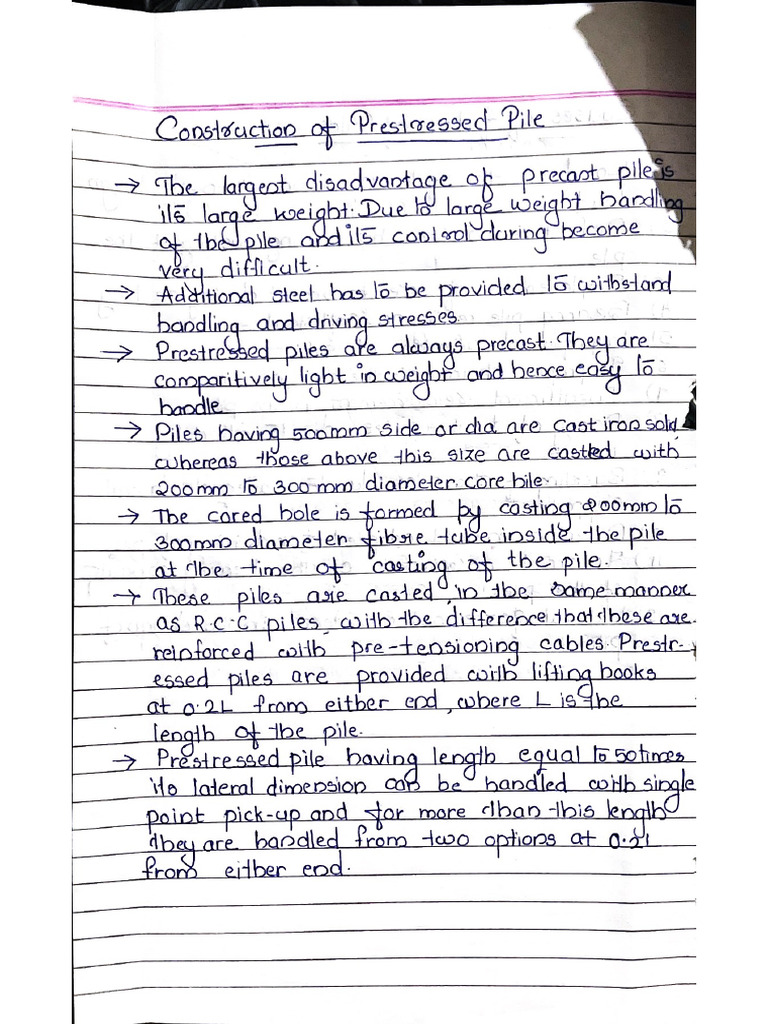 Construction of Prestressed Pile
→ The largest disadvantage of precast pile is
its large weight. Due to large weight handling
of the pile and its control during become
very difficult.
→ Additional steel has to be provided to withstand
handling and driving stresses
→ Prestressed piles are always precast. They are
comparitively light in weight and hence easy to
handle
→ Piles having 500mm side or dia are cast iron solid
whereas those above this size are casted with
200mm to 300mm diameter core hile.
→ The cared hole is formed by casting 200mm to
300mm diameter fibre tube inside the pile
at the time of casting of the pile.
→ These piles are casted in the same manner
as R.C.C piles, with the difference that these are
reinforced with pre-tensioning cables. Prestr-
essed piles are provided with lifting hooks
at 0.2L from either end, where L is the
length of the pile.
→ Prestressed pile having length equal to 50 times
its lateral dimension can be handled with single
point pick-up and for more than this length
they are handled from two options at 0.2l
from either end.